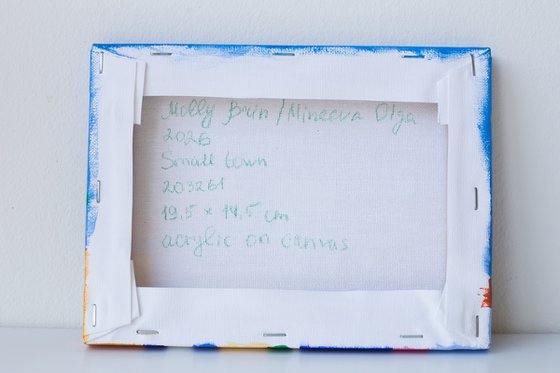 Molly Brin / Mineeva Olga
2026
Small town
203261
19,5 × 14,5 cm
acrylic on canvas